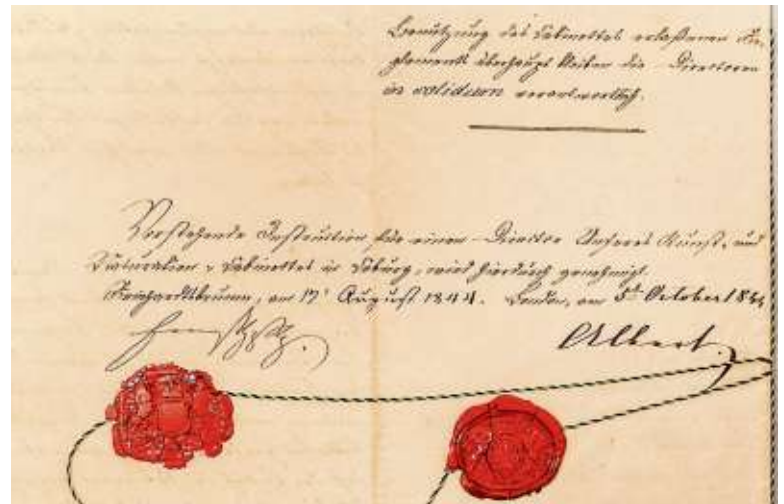 Benützung des Cabinettes erlaßenen Re-
glements überhaupt bleiben die Directoren
in solidum verantwortlich.
Vorstehende Instruction für einen Director Unseres Kunst- und
Naturalien-Cabinettes in Coburg, wird hierdurch genehmigt.
Reinhardtsbrunn, am 17t August 1844. London, am 5th October 1844
Ernst HzSCG.
Albert